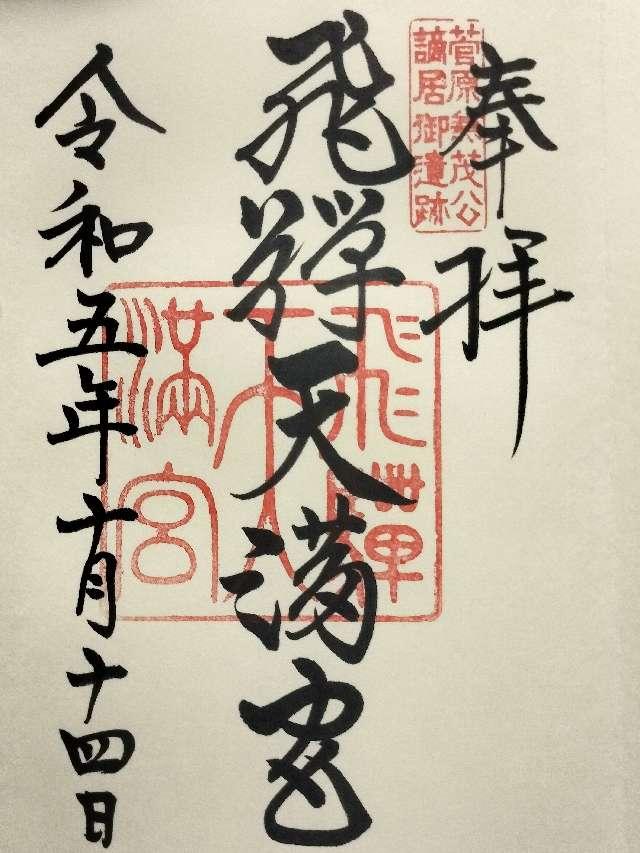 奉拝
菅原兼茂公
謫居御遺跡
飛騨天満宮
飛騨
天
満宮
令和五年十月十四日